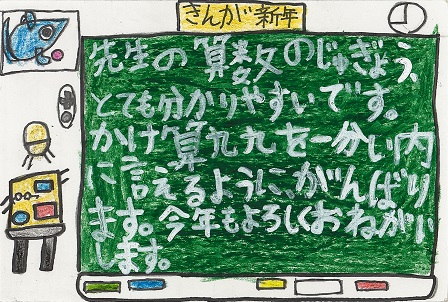 きんが新年
先生の算数のじゅぎょう、
とても分かりやすいです。
かけ算九九を一分い内
に言えるように、がんばり
ます。今年もよろしくおねがい
します。